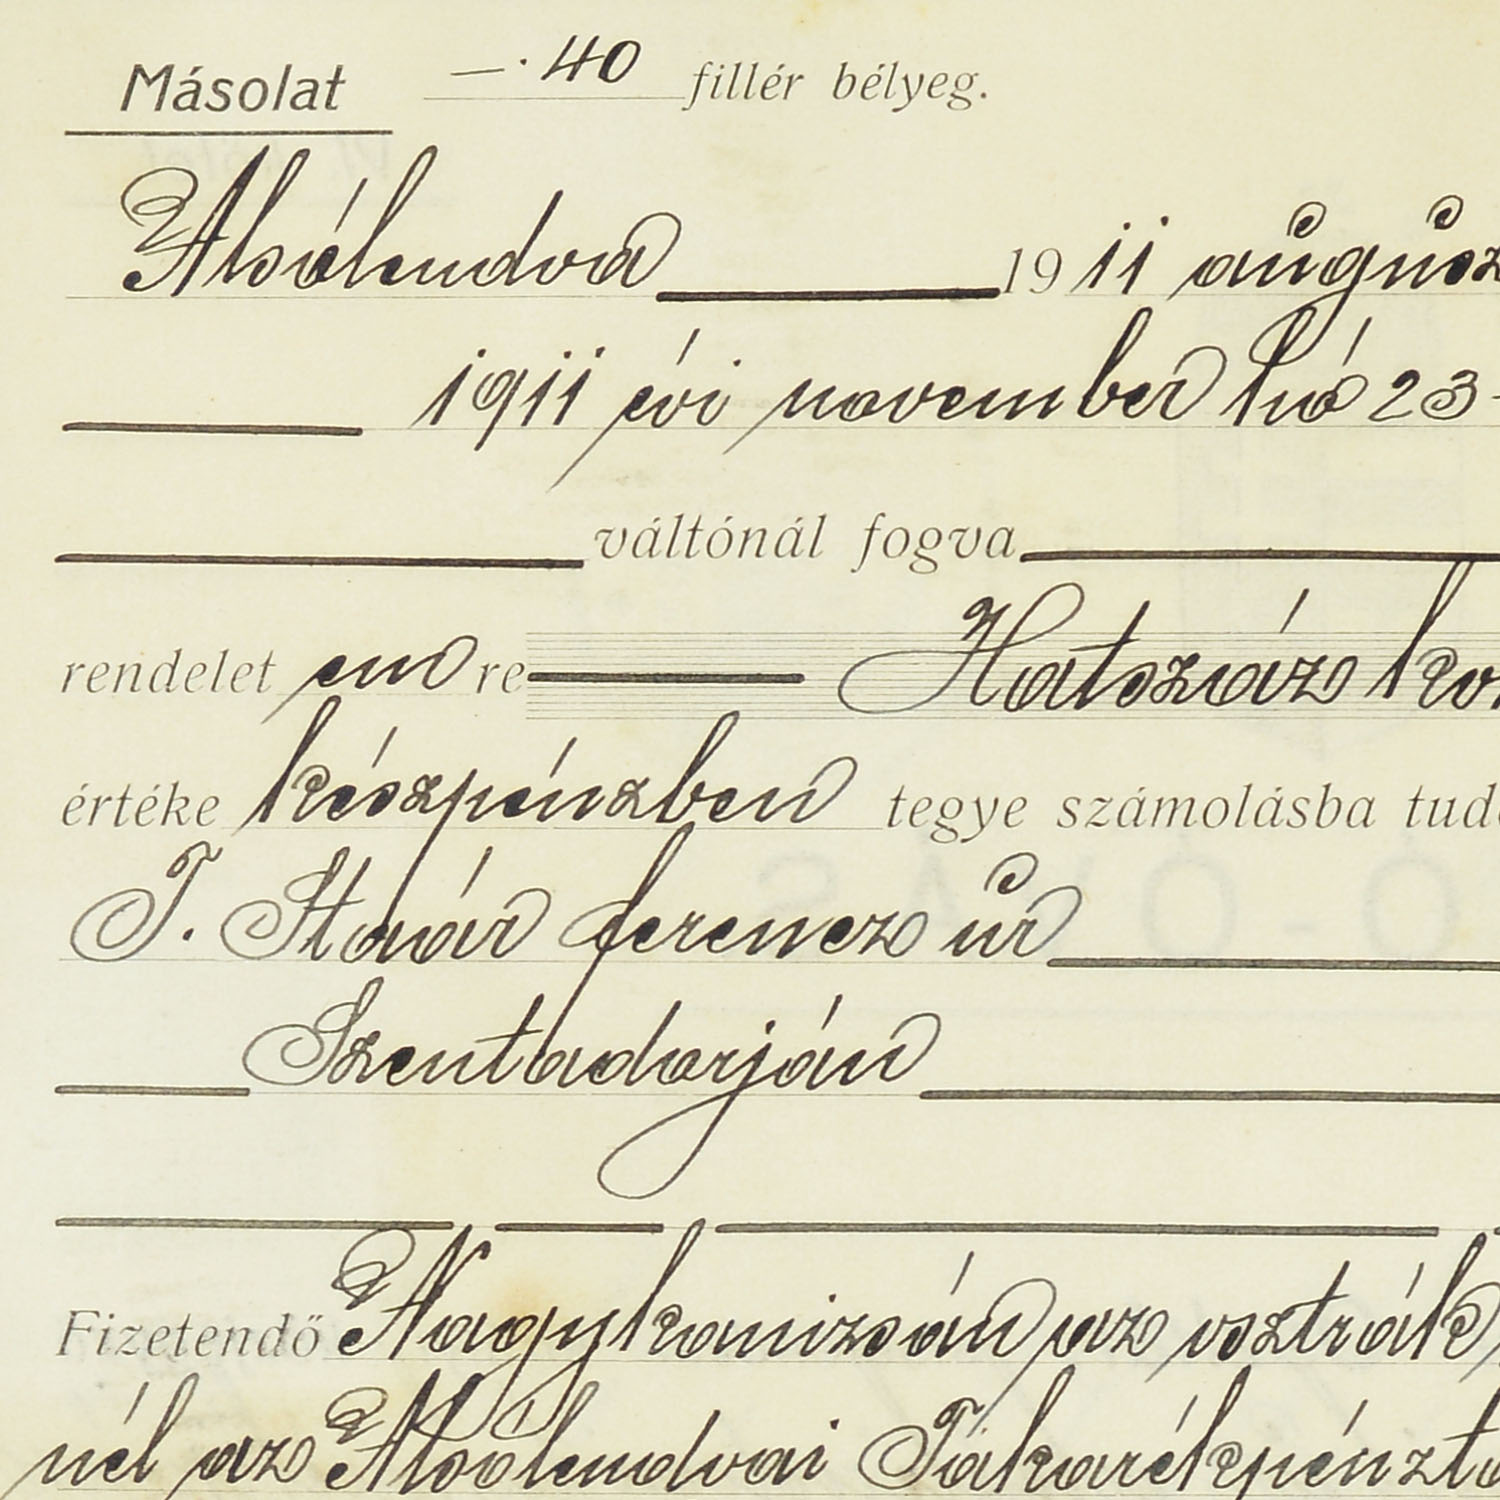 Másolat —·40 fillér bélyeg.
Alsólendva 1911 augusz
1911 évi november hó 23-
váltónál fogva
rendelet en re Hatszáz ko
értéke készpénzben tegye számolásba tud
T. ferencz úr
Szentadorján
Fizetendő Nagykanizsán az osztrák
nél az Alsólendvai Takarékpénzt